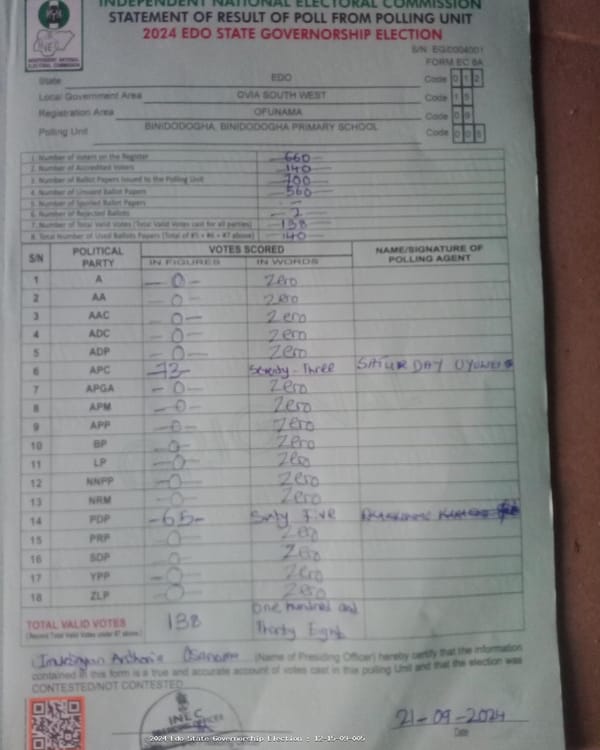 INDEPENDENT NATIONAL ELECTORAL COMMISSION
STATEMENT OF RESULT OF POLL FROM POLLING UNIT
2024 EDO STATE GOVERNORSHIP ELECTION
INEC
INDEPENDENT NATIONAL ELECTORAL COMMISSION
FORM EC 8A
State EDO Code 012
Local Government Area OVIA SOUTH WEST Code 15
Registration Area OFUNAMA Code 09
Polling Unit BINIDODOGHA, BINIDODOGHA PRIMARY SCHOOL Code 005
1. Number of Voters on the Register 660
2. Number of Accredited Voters 140
3. Number of Ballot Papers Issued to the Polling Unit 700
4. Number of Unused Ballot Papers 560
5. Number of Spoiled Ballot Papers -
6. Number of Rejected Ballots - 2
7. Number of Total Valid Votes (Total Valid Votes cast for all parties) 138
8. Total Number of Used Ballots Papers (Total of #5 + #6 + #7 above) 140
S/N POLITICAL PARTY VOTES SCORED NAME/SIGNATURE OF POLLING AGENT
IN FIGURES IN WORDS
1 A -0- Zero
2 AA -0- Zero
3 AAC -0- Zero
4 ADC -0- Zero
5 ADP -0- Zero
6 APC -73- Seventy-Three SATURDAY
7 APGA -0- Zero
8 APM -0- Zero
9 APP -0- Zero
10 BP -0- Zero
11 LP -0- Zero
12 NNPP -0- Zero
13 NRM -0- Zero
14 PDP -65- Sixty Five
15 PRP -0- Zero
16 SDP -0- Zero
17 YPP -0- Zero
18 ZLP -0- Zero
TOTAL VALID VOTES 138 One hundred and
(Record Total Valid Votes under #7 above) Thirty Eight
(Name of Presiding Officer) hereby certify that the information
contained in this form is a true and accurate account of votes cast in this polling Unit and that the election was
CONTESTED/NOT CONTESTED
INEC
21-09-2024
Date
2024 Edo State Governorship Election : 12-15-09-005